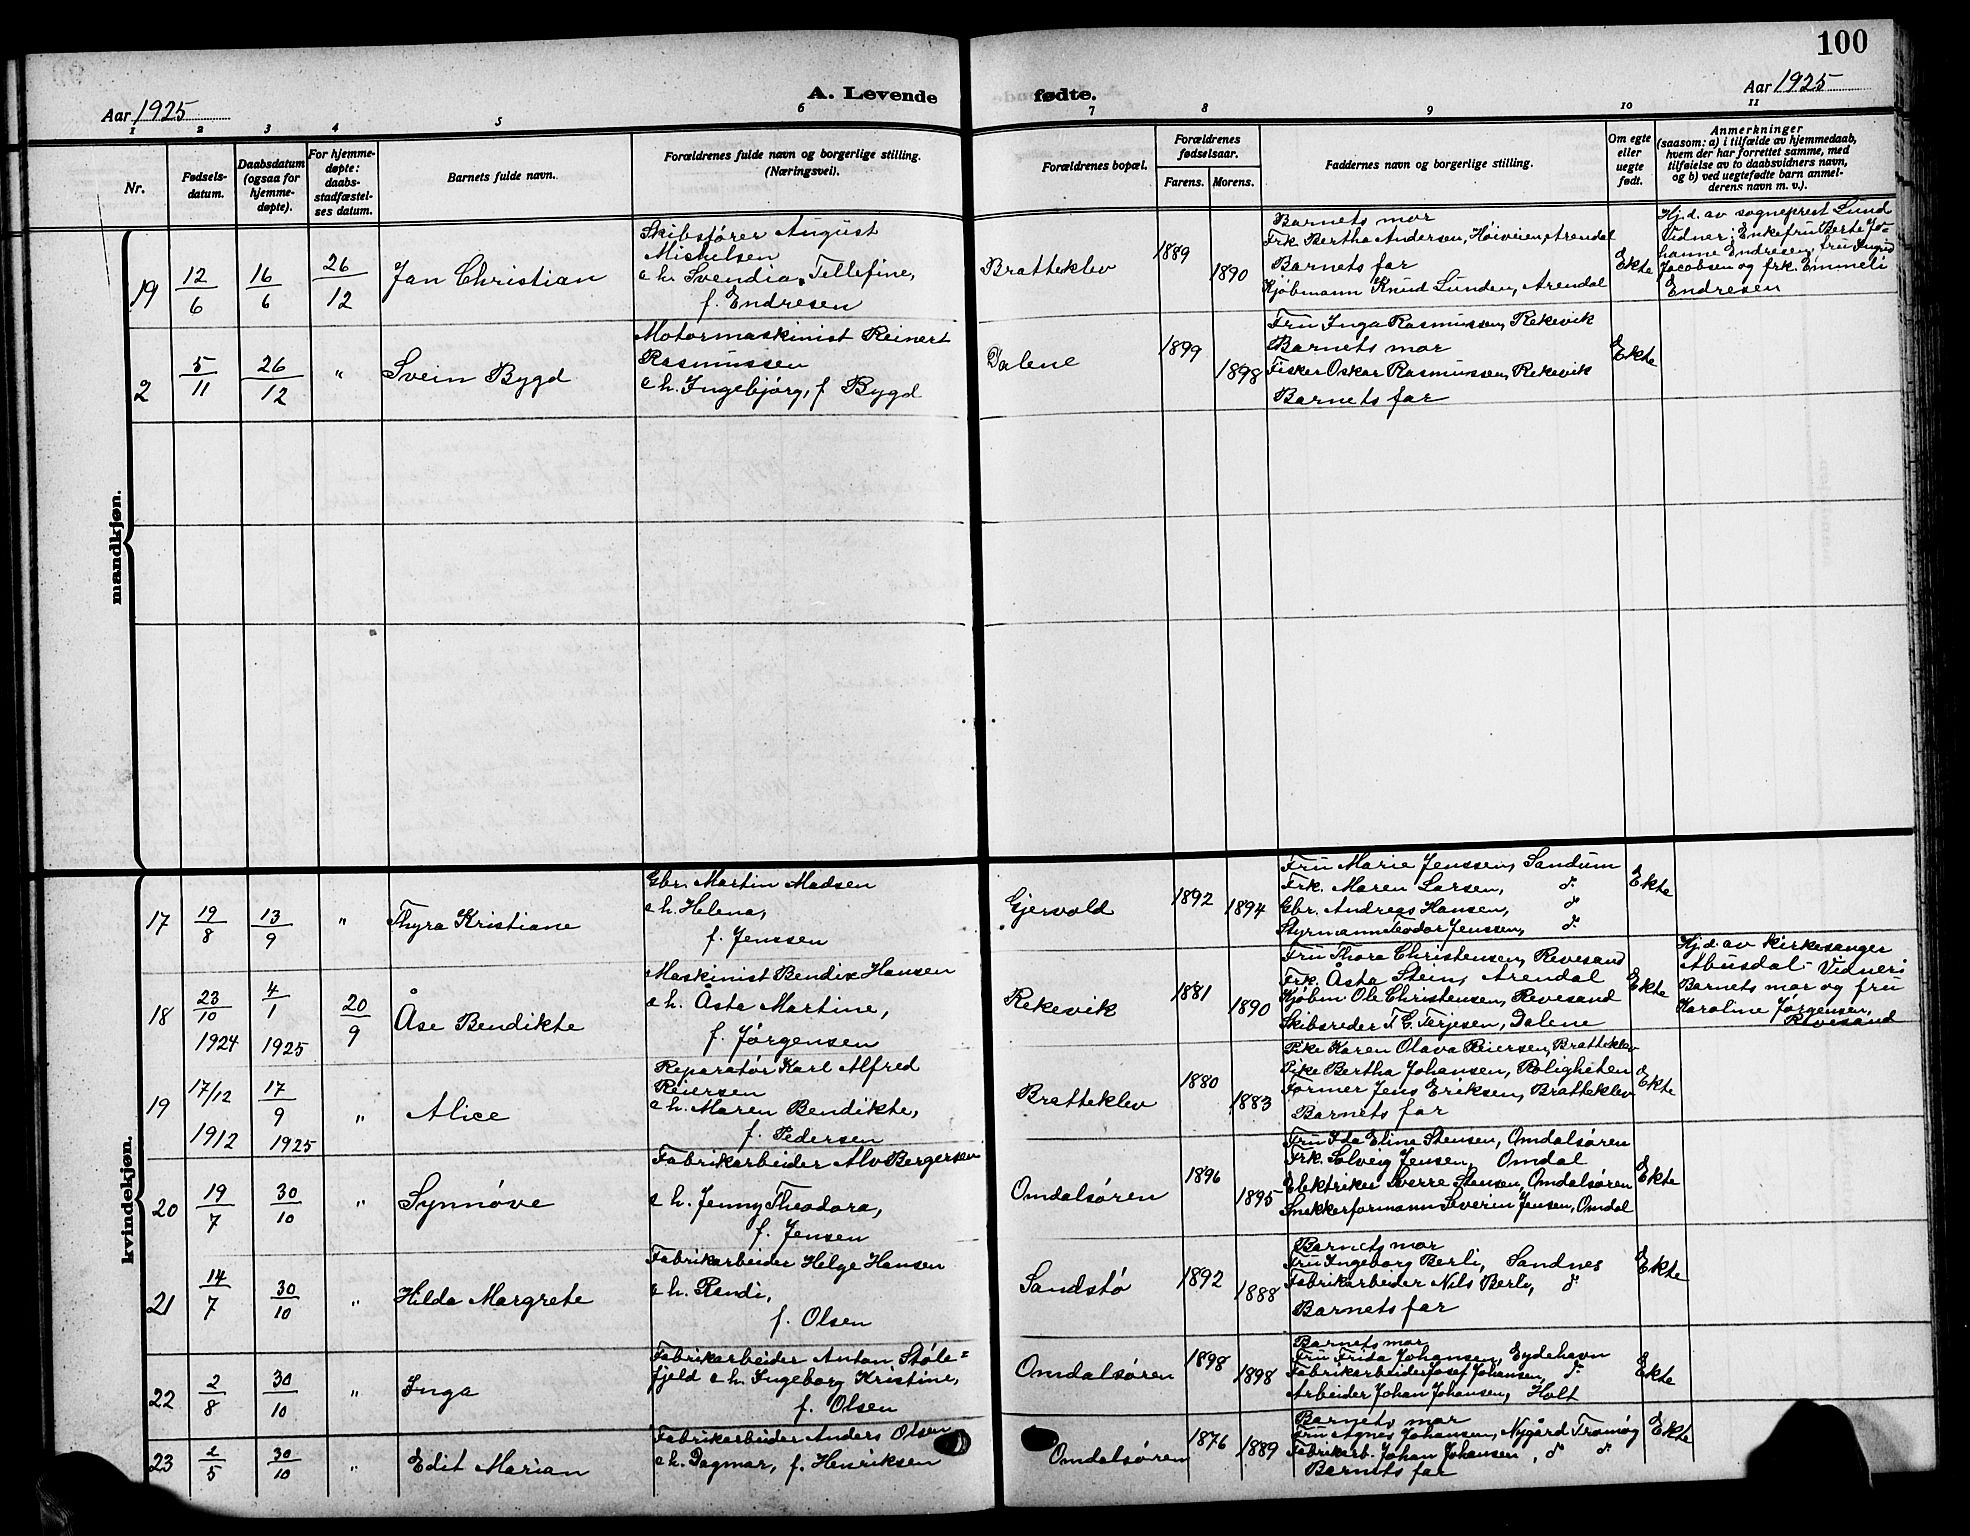 100
Aar 1925
A. Levende
fødte.
Aar 1925
1 2 3 4 5 6 7 8 9 10 11
Nr.
Fødsels-
datum.
Daabsdatum
(ogsaa for
hjemme-
døpte).
For hjemme-
døpte:
daabs-
stadfæstel-
ses datum.
Barnets fulde navn.
Forældrenes fulde navn og borgerlige stilling.
(Næringsvei).
Forældrenes bopæl.
Forældrenes
fødselsaar.
Farens. Morens.
Faddernes navn og borgerlige stilling.
Om egte
eller
uegte
født.
Anmerkninger
(saasom: a) i tilfælde av hjemmedaab,
hvem der har forrettet samme, med
tilføielse av to daabsvidners navn,
og b) ved uegtefødte barn anmel-
derens navn m. v.).
mandkjøn.
19
12/6
16/6
26/12
Jan Christian
Skibsfører August
Michelsen
e h. Svendia Tellefine,
f. Endresen
Bratteklev
1889
1890
Barnets mor
Frk. Bertha Andersen, Høiveien, Arendal
Barnets far
Kjøbmann Knud Lunden, Arendal
Ekte
Hj.d. av sogneprest Lund
Vidner: Enkefru Berte Jo-
hanne Endresen, fru Ingrid
Jacobsen og frk. Emmeli
Endresen
2
5/11
26/12
"
Svein Bygd
Motormaskinist Reinert
Rasmussen
e h. Ingebjørg, f Bygd
Dalene
1899
1898
Fru Inga Rasmussen, Rekevik
Barnets mor
Fisker Oskar Rasmussen, Rekevik
Barnets far
Ekte
kvindekjøn.
17
19/8
13/9
"
Thyra Kristiane
Gbr. Martin Madsen
e h. Helena,
f. Jenssen
Gjervold
1892
1894
Fru Marie Jenssen, Sandum
Frk. Maren Larsen, d.
Gbr. Andreas Hansen, d
Styrmann Teodor Jenssen, d.
Ekte
18
23/10
1924
4/1
1925
20/9
Åse Bendikte
Maskinist Bendix Hansen
e h. Åsta Martine,
f. Jørgensen
Rekevik
1881
1890
Fru Thora Christensen, Revesand
Frk. Åsta Stein, Arendal
Kjøbm Ole Christensen, Revesand
Skibsreder T. C. Terjesen, Dalene
Ekte
Hj.d. av kirkesanger
Abusdal. Vidner:
Barnets mor og fru
Karoline Jørgensen,
Revesand
19
17/12
1912
17/9
1925
"
Alice
Reparatør Karl Alfred
Reiersen
e h. Maren Bendikte,
f. Pedersen
Bratteklev
1880
1883
Pike Karen Olava Reiersen, Bratteklev
Pike Bertha Johansen, Roligheten
Former Jens Eriksen, Bratteklev
Barnets far
Ekte
20
19/7
30/10
"
Synnøve
Fabrikarbeider Alv Bergersen
e h. Jenny Theodora,
f. Jensen
Omdalsøren
1896
1895
Fru Ida Eline Stensen, Omdalsøren
Frk. Solveig Jensen, Omdal
Elektriker Sverre Stensen, Omdalsøren
Snekkerformann Severin Jensen, Omdal
Ekte
21
14/7
30/10
"
Hilda Margrete
Fabrikarbeider Helge Hansen
e h. Randi,
f. Olsen
Sandstø
1892
1888
Barnets mor
Fru Ingeborg Berli, Sandnes
Fabrikarbeider Nils Berli, d
Barnets far
Ekte
22
2/8
30/10
"
Inga
Fabrikarbeider Anton Støle=
fjeld e h. Ingeborg Kristine,
f. Olsen
Omdalsøren
1898
1898
Barnets mor
Fru Frida Johansen, Eydehavn
Fabrikarbeider Josef Johansen, d.
Arbeider Johan Johansen, Holt
Ekte
23
2/5
30/10
"
Edit Marian
Fabrikarbeider Anders Olsen
e h. Dagmar, f. Henriksen
Omdalsøren
1876
1889
Barnets mor
Fru Agnes Johansen, Nygård Tromøy
Fabrikarb. Johan Johansen, d d
Barnets far
Ekte